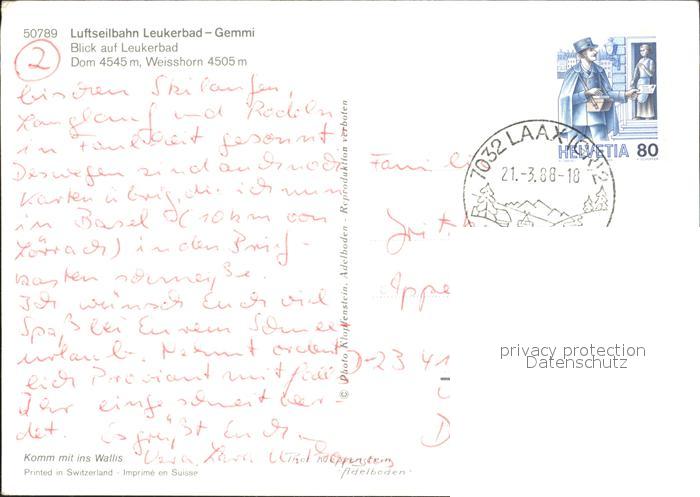 50789 Luftseilbahn Leukerbad – Gemmi
Blick auf Leukerbad
Dom 4545 m, Weisshorn 4505 m
2
bisschen Skilaufen,
Langlauf und Rodeln
in Faulheit gesonnt.
Deswegen sind auch noch
Karten übrig, die ich nun
in Basel (10 km von
Lörrach) in den Brief-
kasten schmeiße.
Ich wünsch Euch viel
Spaß bei Eurem Schnee
urlaub. Nehmt ordent
lich Proviant mit, falls
Ihr eingeschneit wer-
det. Es grüßt Euch
Vera,
Komm mit ins Wallis
Printed in Switzerland - Imprimé en Suisse
© Photo Klopfenstein, Adelboden - Reproduktion verboten
Klopfenstein
Adelboden
HELVETIA 80
LAAX
21.-3.88-18
Familie
D-23 41
privacy protection
Datenschutz